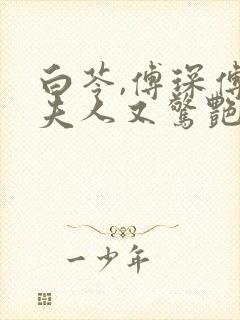 白苓,傅琛傅
夫人又驚艷
一少年